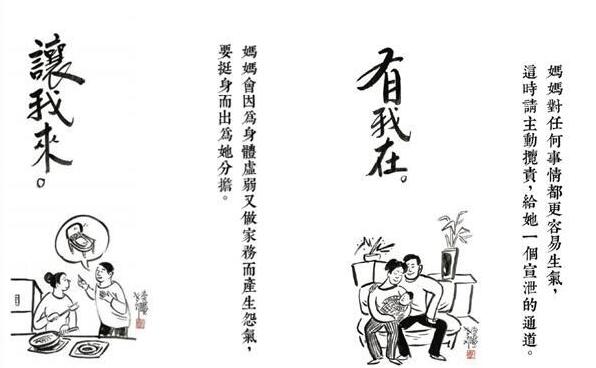 讓我來。
媽媽會因為身體虛弱又做家務而產生怨氣，
要挺身而出為她分擔。
有我在。
媽媽對任何事情都更容易生氣，
這時請主動攬責，給她一個宣泄的通道。